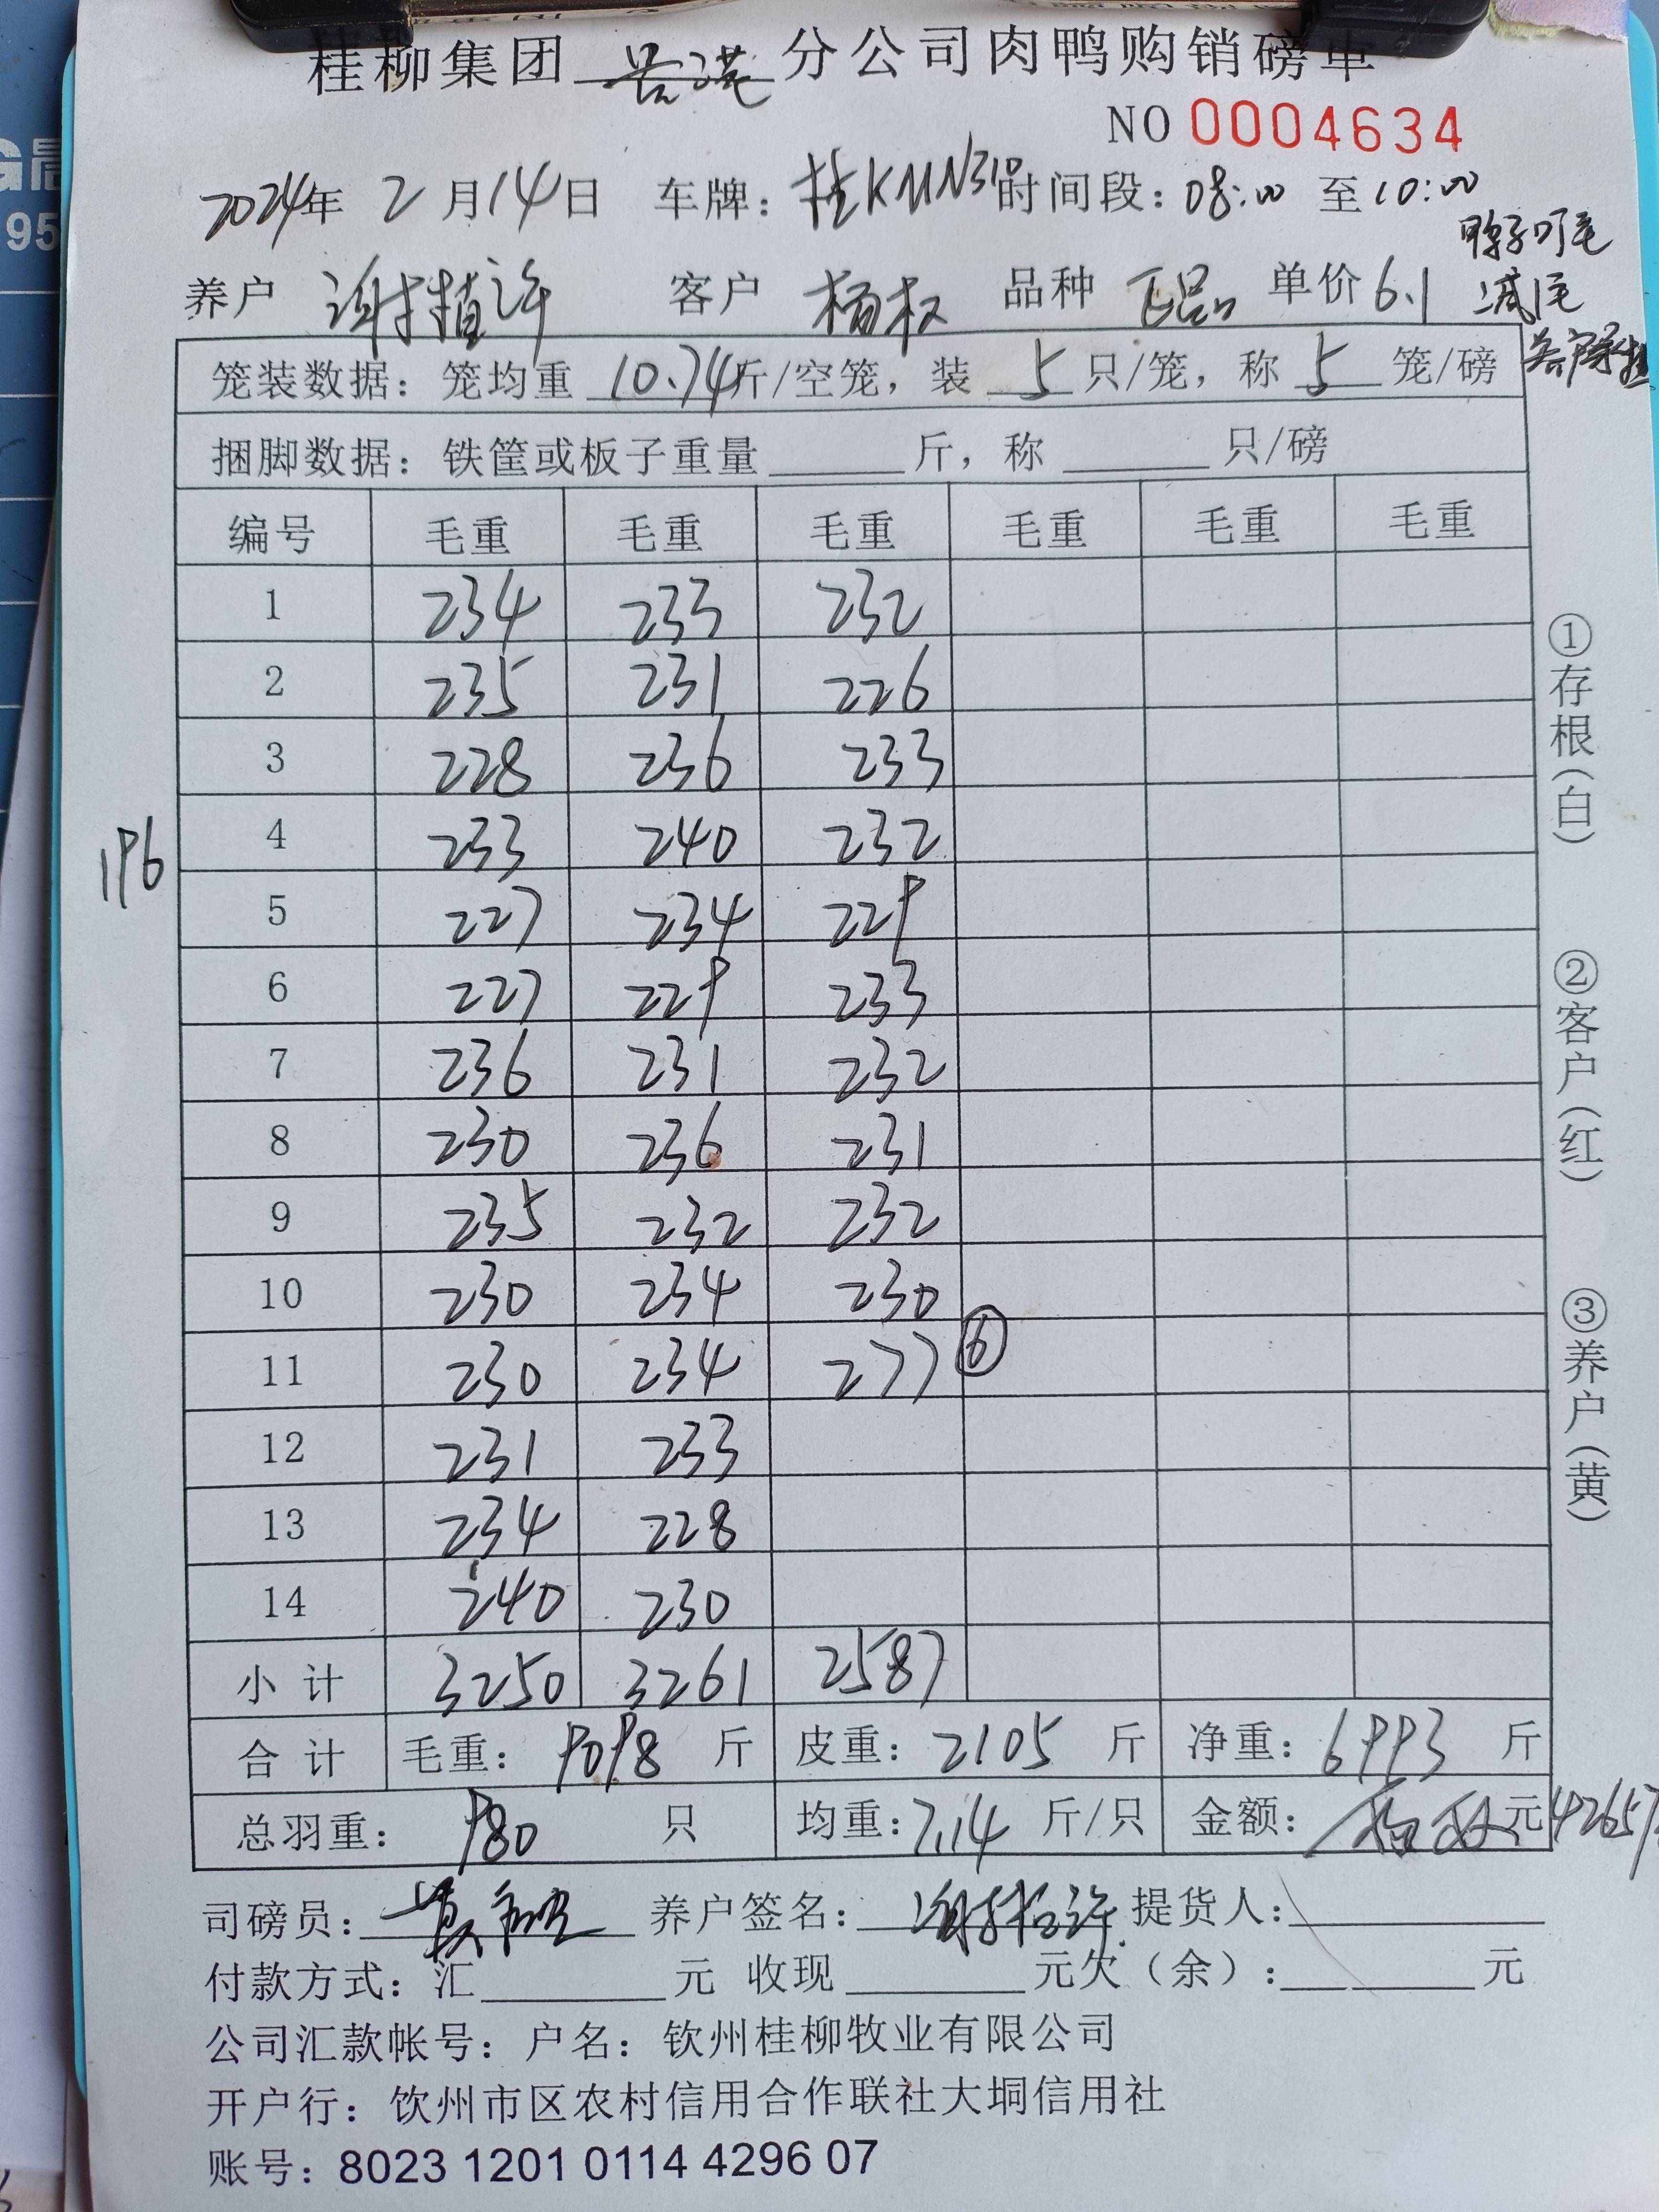 桂柳集团 分公司肉鸭购销磅单
NO 0004634
2024年 2月14日 车牌: 桂KMN310 时间段: 08:00 至10:00
养户 谢植许 客户 杨权 品种 正品 单价6.1
鸭子叮毛
减1毛
笼装数据: 笼均重 10.74斤/空笼, 装 5 只/笼, 称 5 笼/磅
捆脚数据: 铁筐或板子重量 斤, 称 只/磅
编号 毛重 毛重 毛重 毛重 毛重 毛重
1 234 233 232
2 235 231 226
3 228 236 233
4 233 240 232
196
5 227 234 229
6 227 229 233
7 236 231 232
8 230 236 231
9 235 232 232
10 230 234 230
11 230 234 277 ⑥
12 231 233
13 234 228
14 240 230
小计 3250 3261 2587
合计 毛重: 9098 斤 皮重: 2105 斤 净重: 6993 斤
总羽重: 980 只 均重: 7.14 斤/只 金额: 元 42657
司磅员: 养户签名: 谢植许 提货人:
付款方式: 汇 元 收现 元欠(余): 元
公司汇款帐号: 户名: 钦州桂柳牧业有限公司
开户行: 钦州市区农村信用合作联社大垌信用社
账号: 8023 1201 0114 4296 07
①存根(白)
②客户(红)
③养户(黄)
95